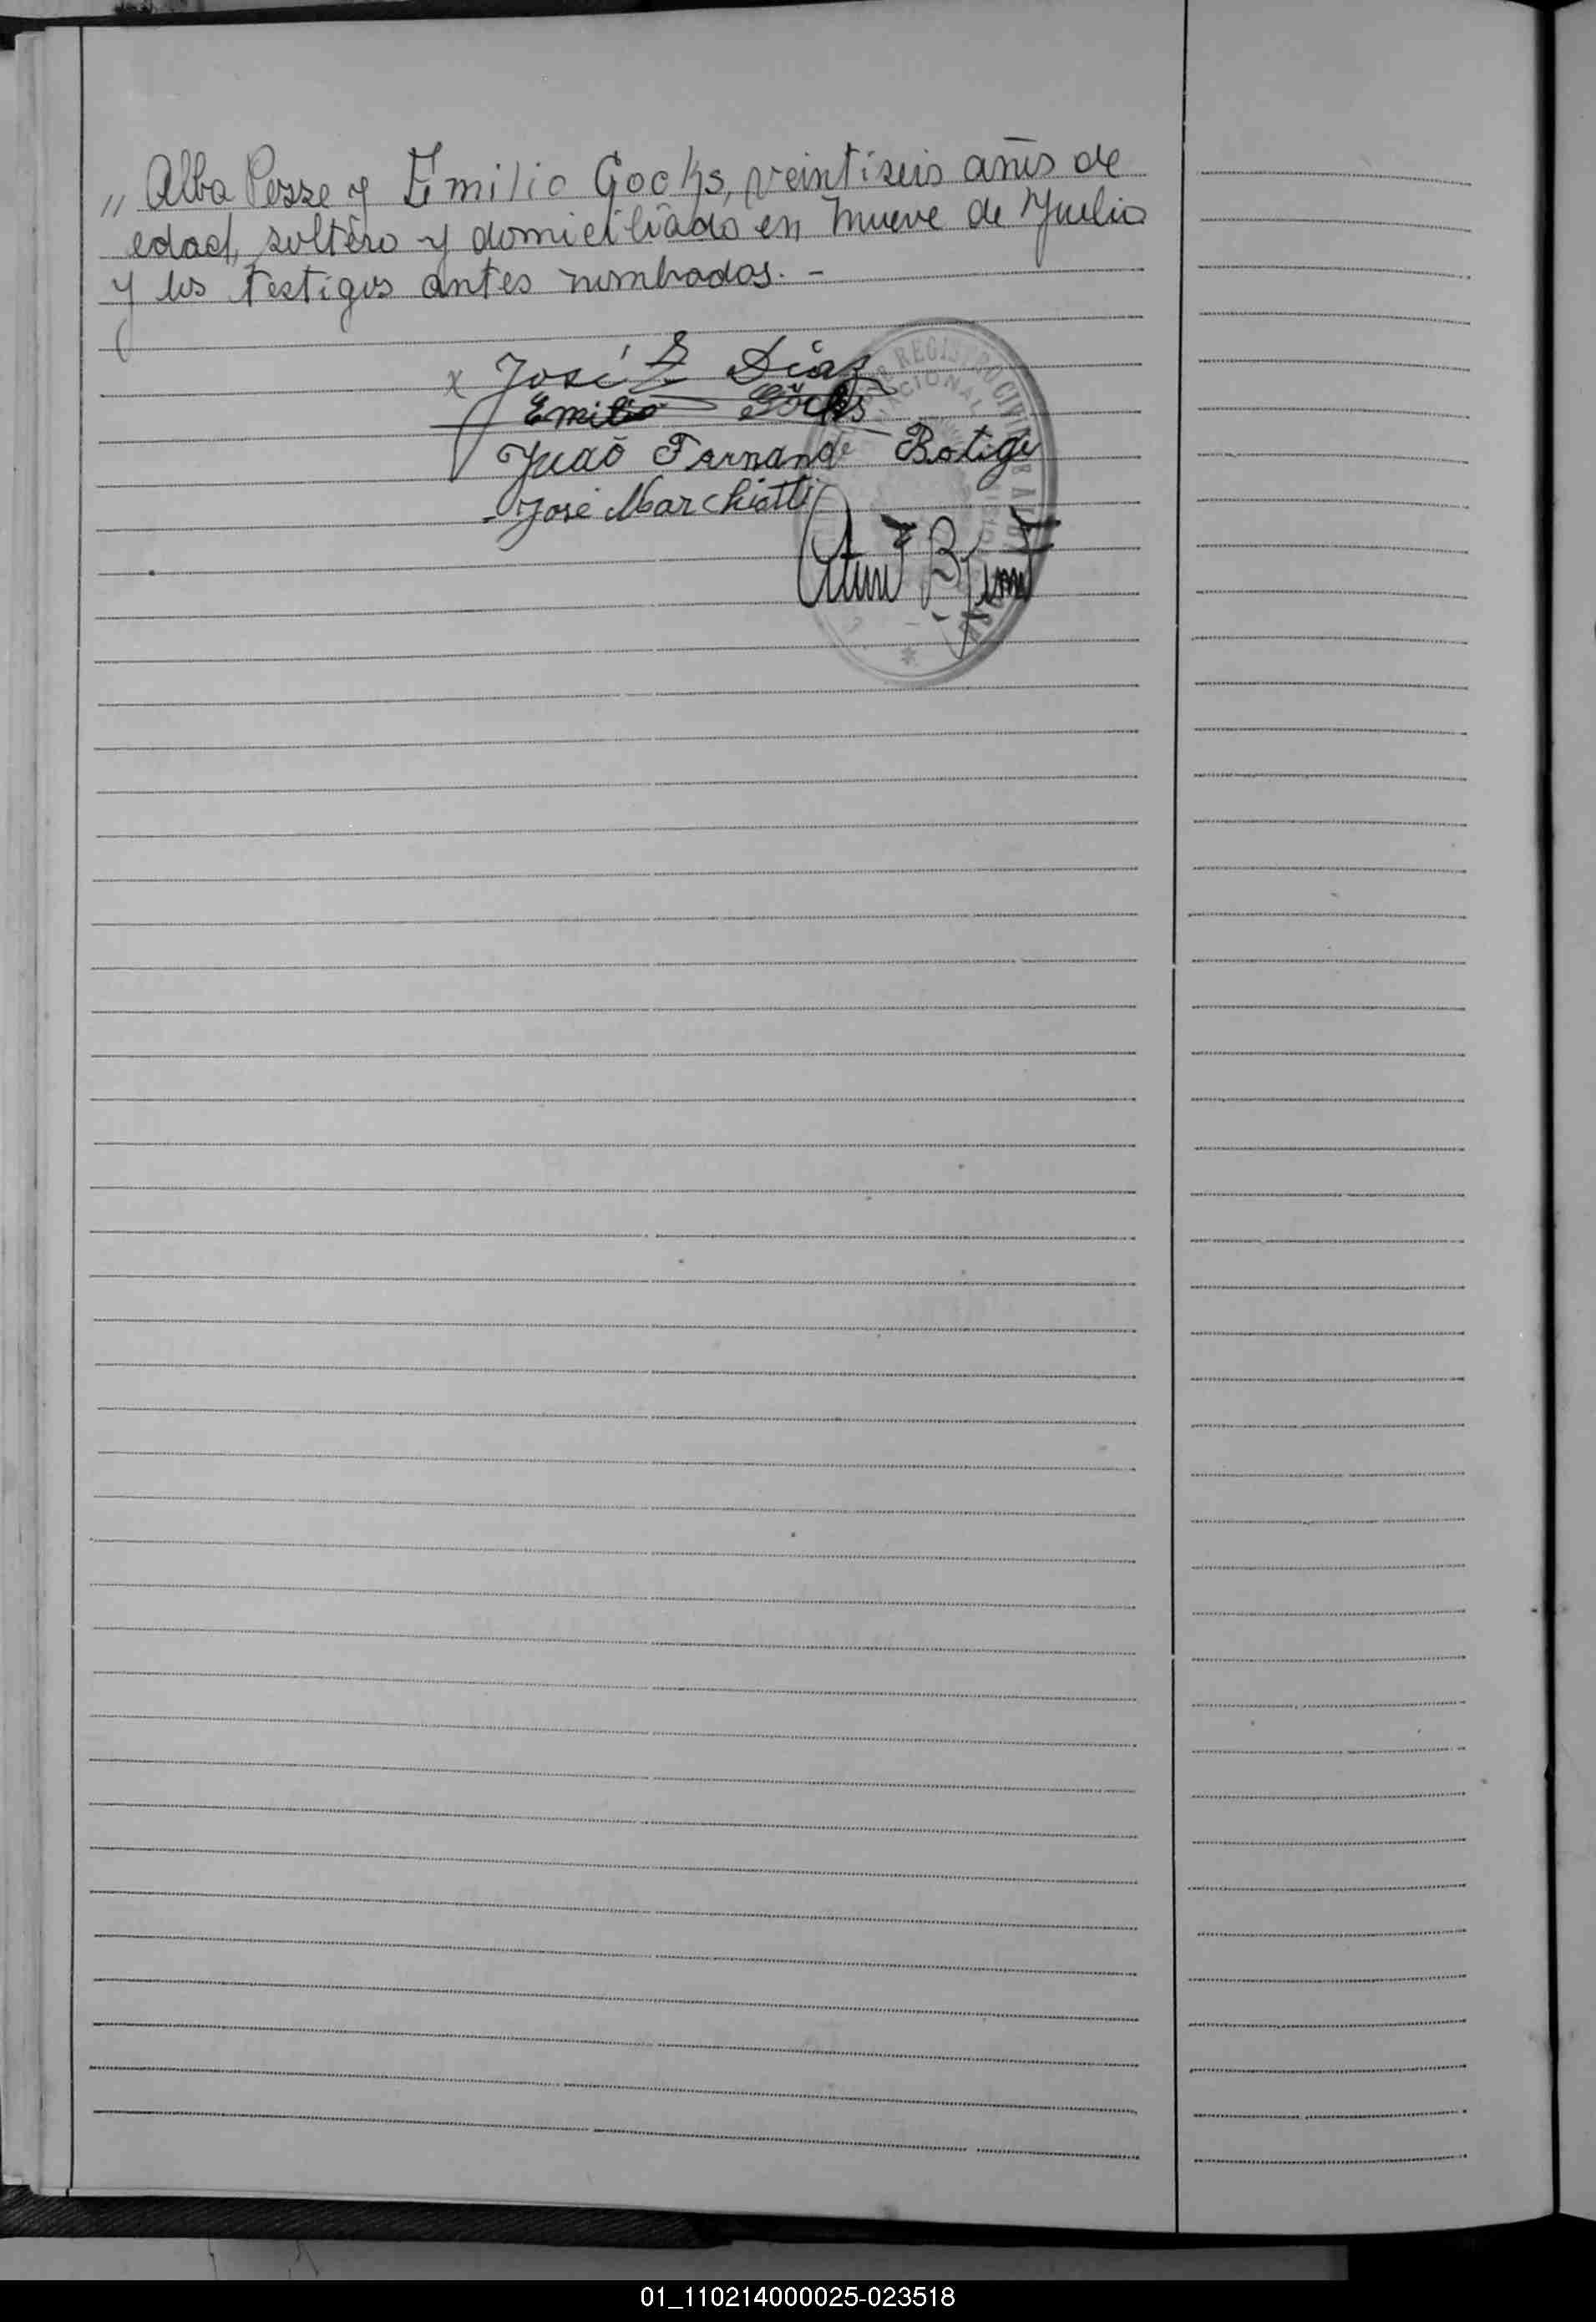 „ Alba Posse y Emilio Gocks, veintiseis años de
edad, soltero y domiciliado en Nueve de Julio
y los testigos antes nombrados. -
x José S Diaz
Emilio Göcks
Juaõ Fernand Botige
José Marchiotti
REGISTRO CIVIL
NACIONAL
01_110214000025-023518